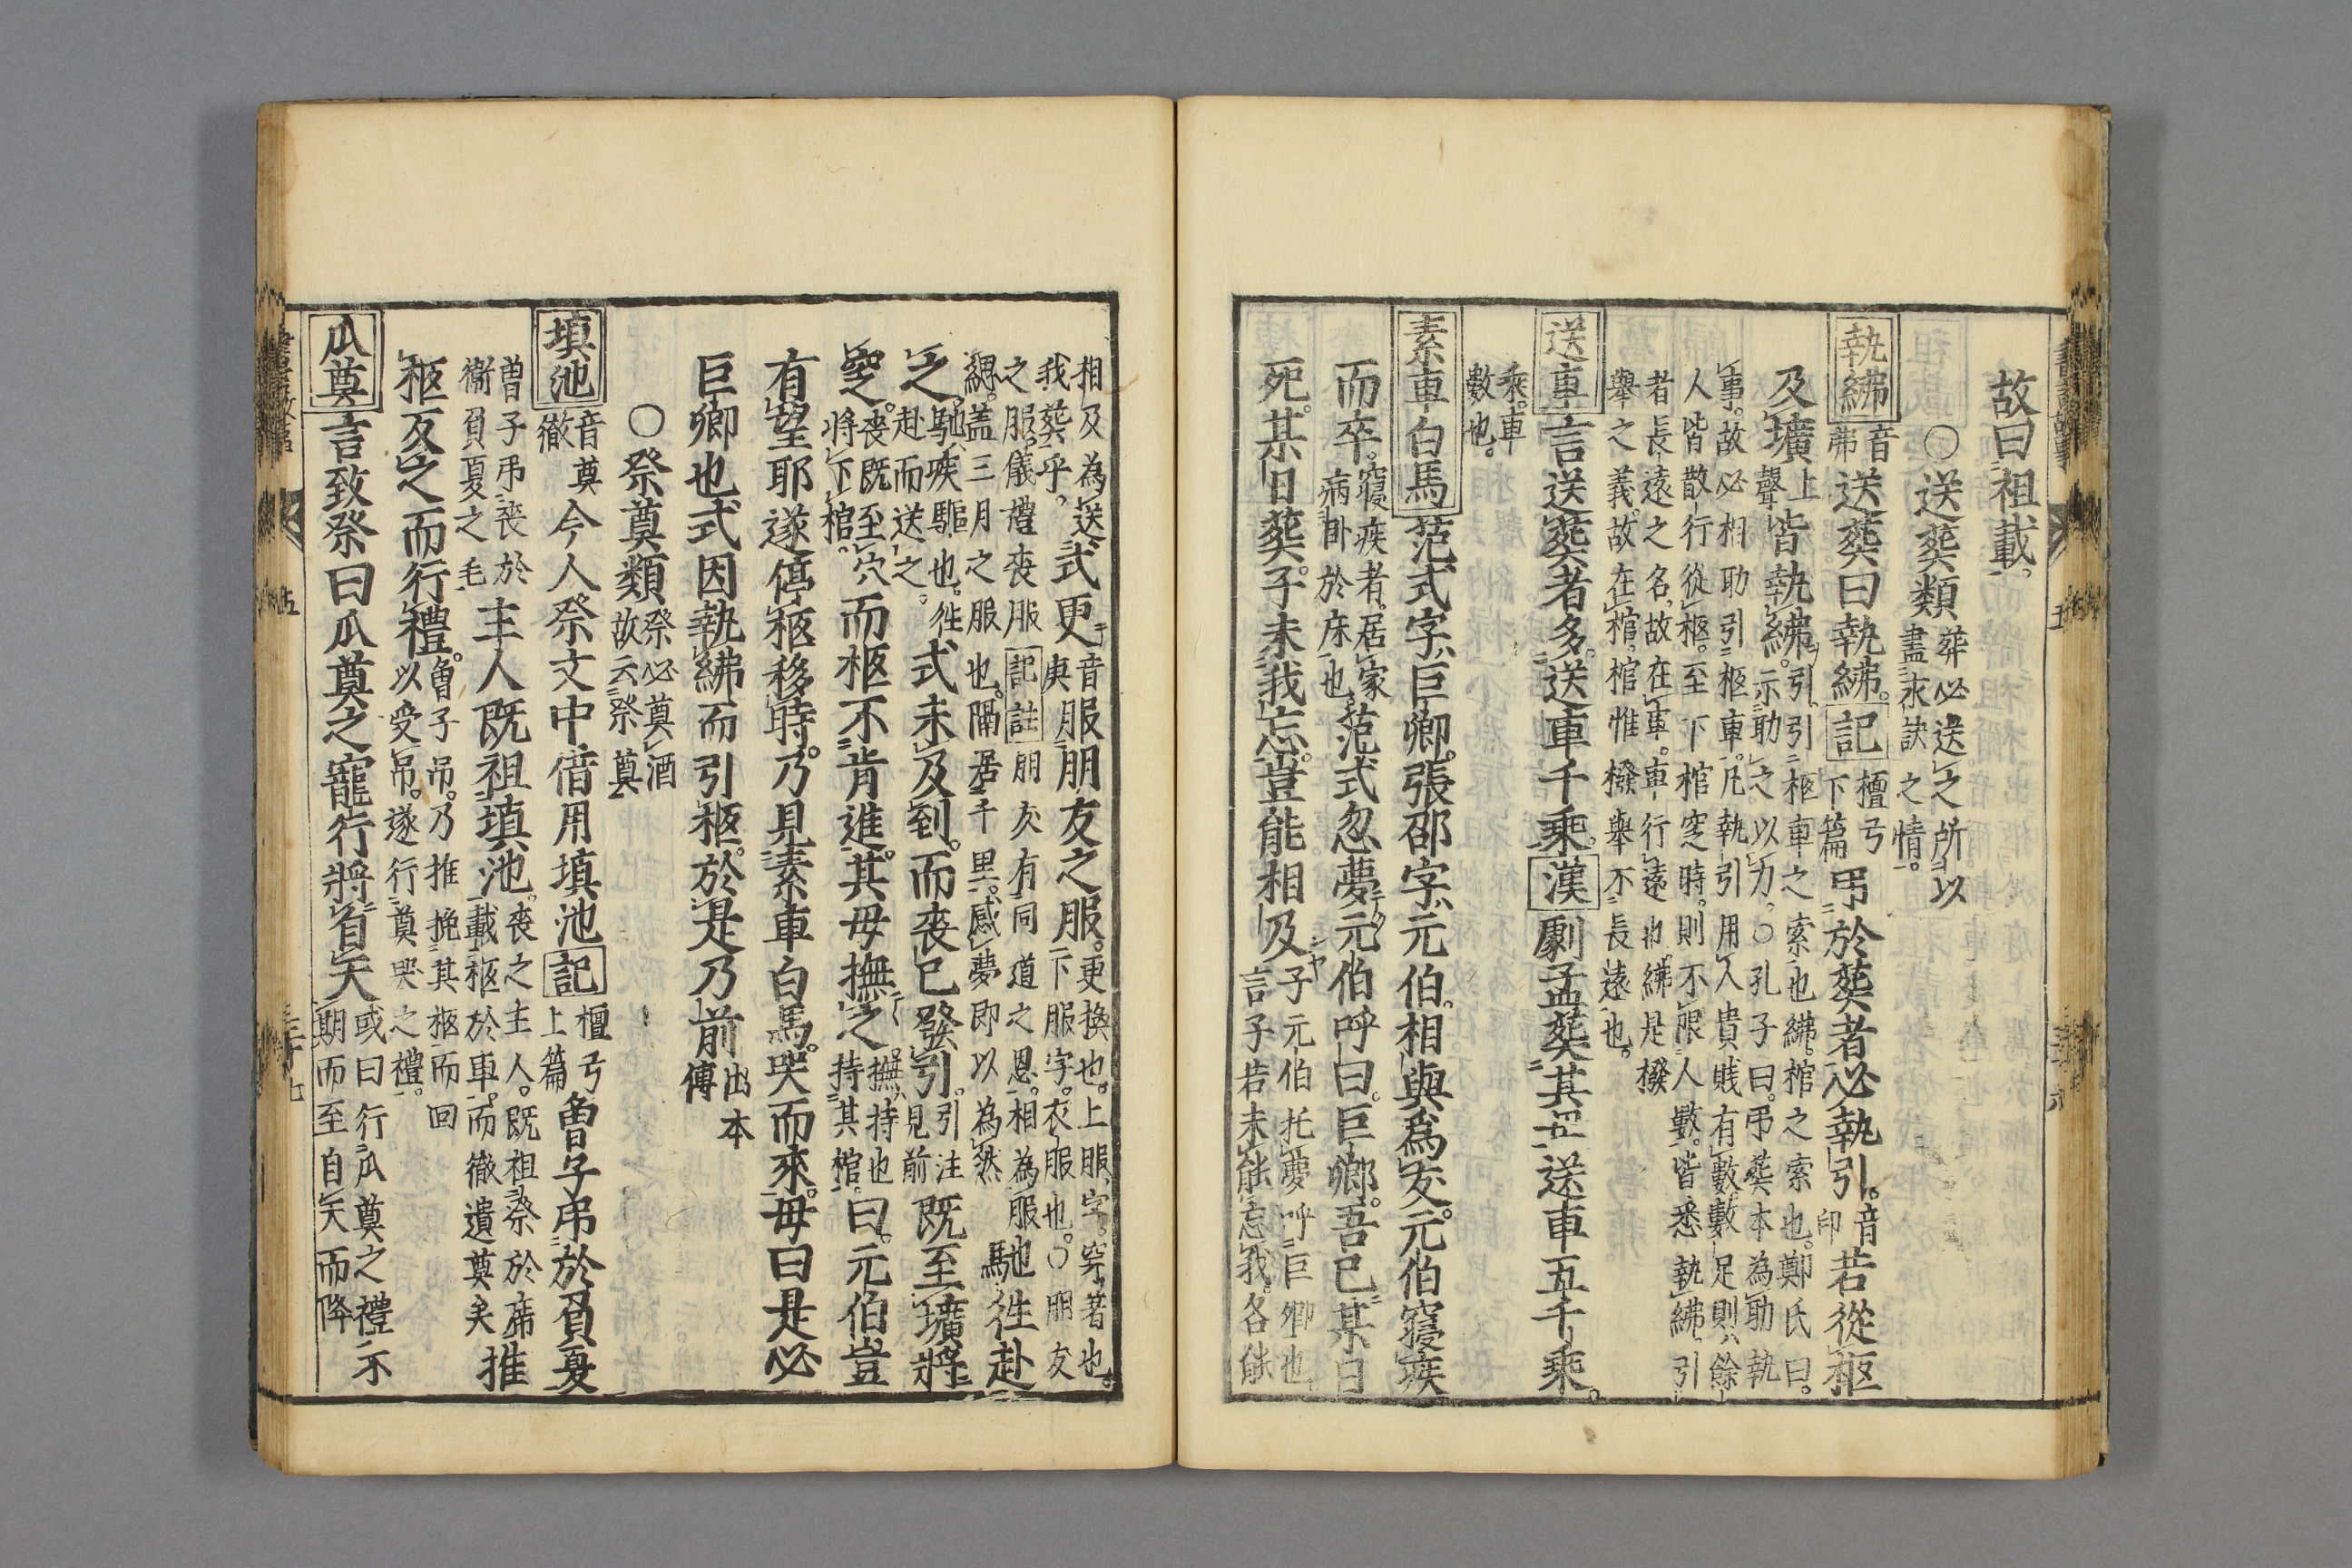 故曰祖載。
○送葬類 葬必送之所以
盡永訣之情。
執紼 音弗 送葬曰執紼。記 檀弓下篇 弔於葬者必執引。音印 若從柩
及壙 上聲 皆執紼。引引柩車之索也紼。棺之索也。鄭氏曰。
示助之以力。○孔子曰。弔葬本為助執
事。故必相助引柩車。凡執引用人貴賤有數數足則餘
人皆散行從柩。至下棺窆時。則不限人數。皆悉執紼。引
者長遠之名。故在車。車行遠也。紼是撥
舉之義。故在棺。棺惟撥舉不長遠也。
送車 言送葬者多。送車千乘。漢 劇孟葬其母送車五千乘。
乘。車
數也。
素車白馬 范式字巨卿。張邵字元伯。相與爲友。元伯寢疾
而卒。寢疾者。居家病卧於床也。范式忽夢元伯呼曰。巨卿。吾已某日
死。某日葬。子未我忘。豈能相及 子元伯托夢呼巨卿也。
言子若未能忘我。各能
相及為送 式更 音庚 服朋友之服。更換也。上服字。穿著也。
我葬乎。下服字。衣服也。○朋友
之服。儀禮喪服 記註 朋友有同道之恩。相為服
緦。蓋三月之服也。隔居千里。感夢即以為然 馳往赴
之。馳疾驅也。往赴而送之。式未及到。而喪已發引。引注見前 既至壙將
窆。喪既至穴將下棺。而柩不肯進。其母撫之 撫持也持其棺。曰。元伯豈
有望耶遂停柩移時。乃見素車白馬。哭而來。母曰是必
巨卿也式因執紼而引柩。於是乃前 出本傳
○祭奠類 祭必奠酒故云祭奠
填池 音奠徹 今人祭文中借用填池 記 檀弓上篇 曾子弔於負夏
曾子弔喪於衞負夏之毛 主人既祖填池。喪之主人。既祖祭於席
載柩於車。而徹遺奠矣 推
柩反之而行禮。曾子吊。乃推挽其柩而回
以受吊。遂行奠哭之禮。
瓜奠 言致祭曰瓜奠之寵行將省天 或曰行瓜奠之禮示
期而至自天而降